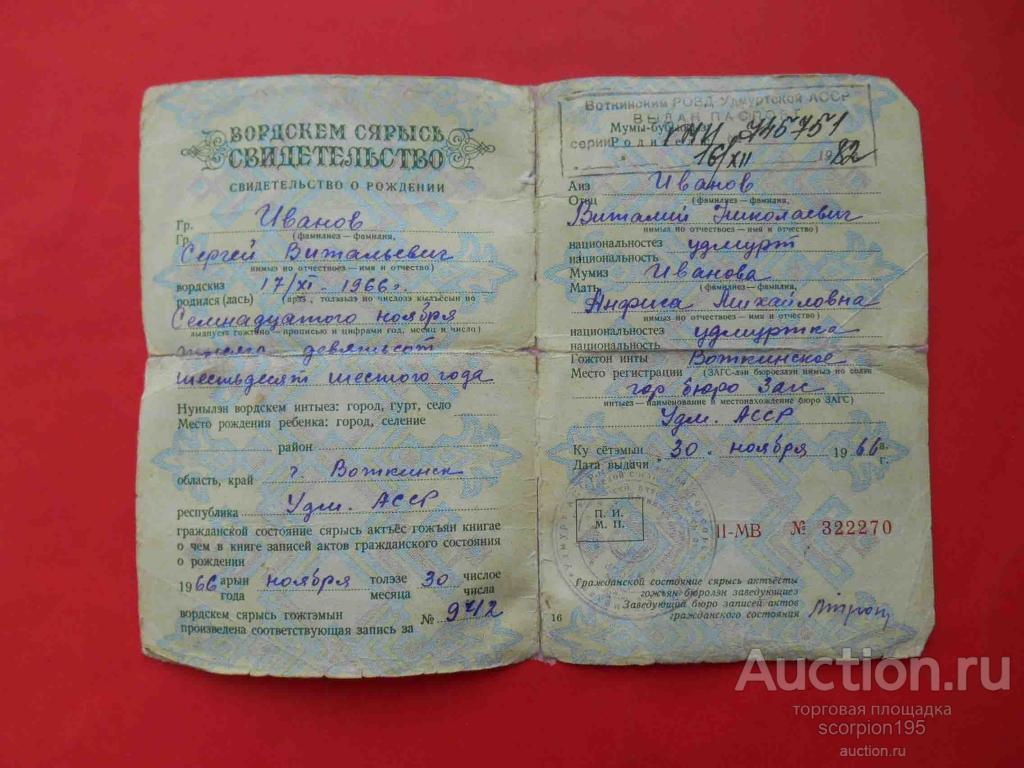 ВОРДСКЕМ СЯРЫСЬ
СВИДЕТЕЛЬСТВО
СВИДЕТЕЛЬСТВО О РОЖДЕНИИ
Гр. Иванов
Гр. (фамилиез — фамилия,
Сергей Витальевич
нимыз но отчествоез — имя и отчество)
вордскиз 17/XI - 1966 г.
родился (лась) (арез, толэзьлэ но числоэз кылъёсын но
Семнадцатого ноября
лыдпусъя гожтыса — прописью и цифрами год, месяц и число)
тысяча девятьсот
шестьдесят шестого года
Нунылэн вордскем интыез: город, гурт, село
Место рождения ребенка: город, селение
район
г. Воткинск
область, край
Удм. АССР
республика
гражданской состояние сярысь актъёс гожъян книгае
о чем в книге записей актов гражданского состояния
о рождении
1966 арын ноября толэзе 30 числое
года месяца числа
вордскем сярысь гожтэмын
произведена соответствующая запись за № 942
Воткинским РОВД Удмуртской АССР
ВЫДАН ПАСПОРТ
Мумы-бубыосыз
серии I НИ № 745751
Родители
16/XII 1982
Аиз Иванов
Отец (фамилиез — фамилия,
Виталий Николаевич
нимыз но отчествоез — имя и отчество)
национальностез удмурт
национальность
Мумиз Иванова
Мать (фамилиез — фамилия,
Анфиса Михайловна
нимыз но отчествоез — имя и отчество)
национальностез удмуртка
национальность
Гожтон инты Воткинское
Место регистрации (ЗАГС-лэн бюроезлэн нимыз но солэн
гор бюро Загс
интыез — наименование и местонахождение бюро ЗАГС)
Удм. АССР
Ку сётэмын 30 ноября 1966 а.
Дата выдачи г.
П. И.
М. П.
II-МВ № 322270
Гражданской состояние сярысь актъёсты
гожъян бюролэн заведующиез
Заведующий бюро записей актов
гражданского состояния
16
Auction.ru
торговая площадка
scorpion195
auction.ru